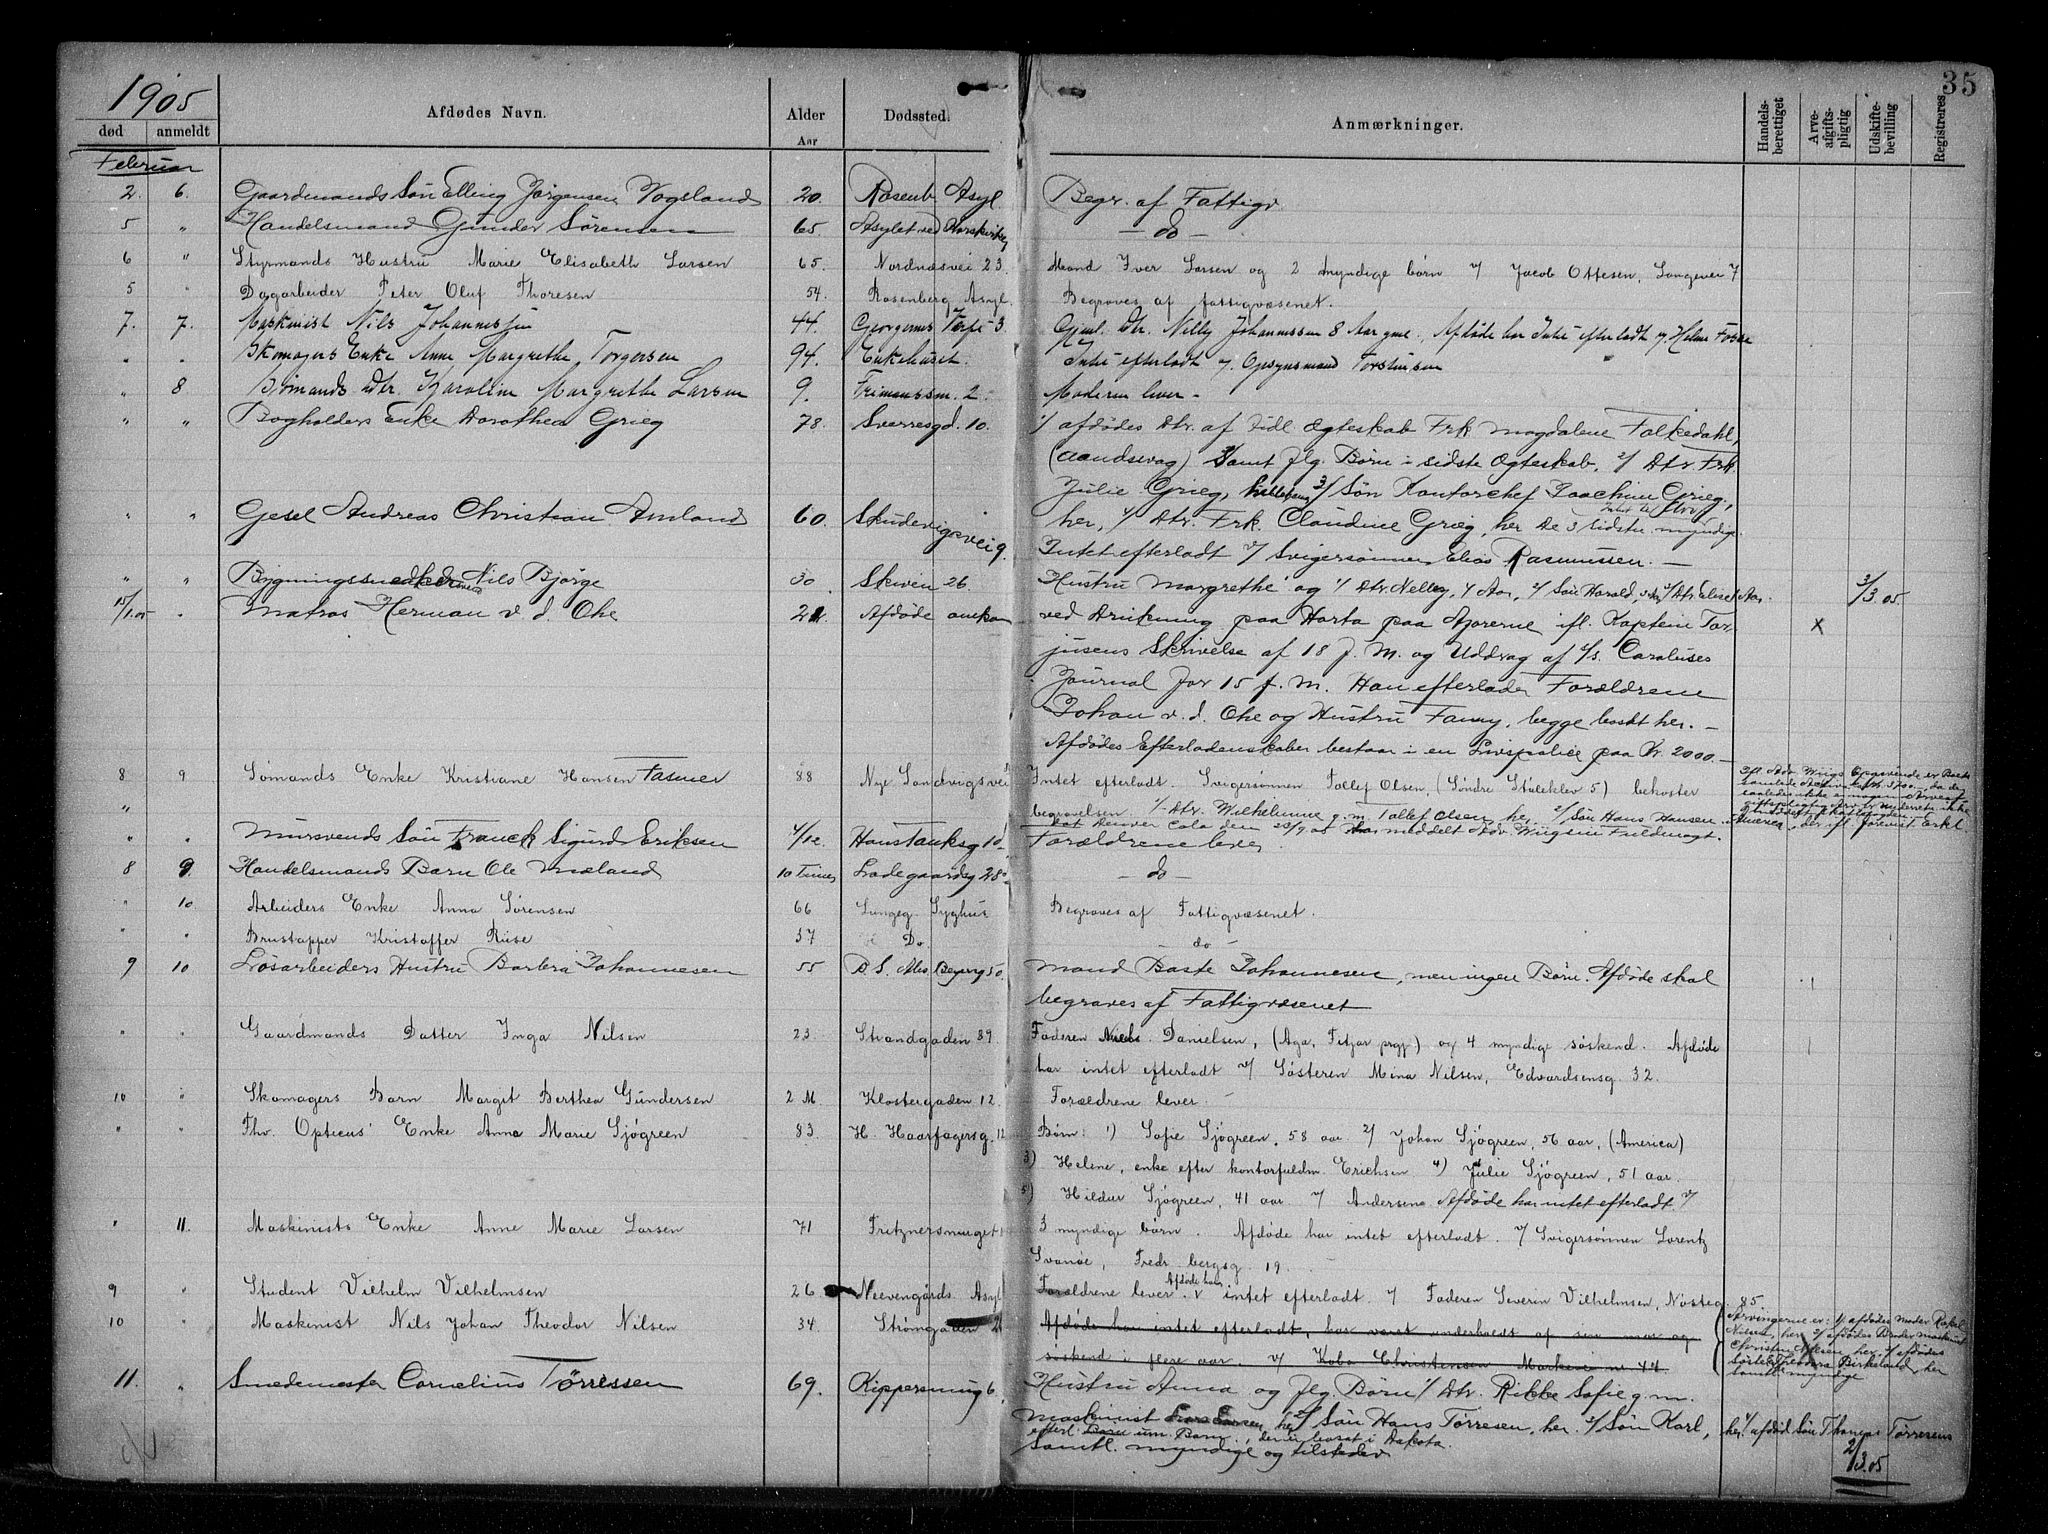 35
1905
død anmeldt Afdødes Navn. Alder Aar Dødssted. Anmærkninger. Handels-berettiget Arve-afgifts-pligtig Udskifte-bevilling Registreres
Februar
2. 6. Gaardmands Søn Elling Jørgensen Vogsland 20. Rosenb. Asyl Begr. af Fattigv.
5 " Handelsmand Gunder Sørensen 65. Asylet ved - do -
6 " Styrmands Hustru Marie Elisabeth Larsen 65. Nordnæsvei 23. Mand Iver Larsen og 2 myndige børn v/ Jacob Ottesen, Langevei 7
5 " Dagarbeider Peter Oluf Thoresen 54 Rosenberg Asyl. Begraves af fattigvæsenet.
7. 7. Maskinist Nils Johannssen 44. Georgernes 3. Dtr. Nelly Johannssen 8 Aar gml. Afdøde har Intet efterladt v/
" " Skomagers Enke Anne Margrethe Torgersen 94. Enkehuset. Intet efterladt v/ Opsynsmand Torstensen
" 8 Dtr. Karoline Margrethe Larsen 9. Frimanssm. 2. Moderen lever -
" " Bogholders Enke Dorothea Grieg 78. Sverresgd. 10. 1/ afdødes Dtr. af tidl. Ægteskab Frk Magdalene Falkedahl,
(aandssvag) Samt flg. Børn i sidste Ægteskab, 2/ Dtr. Frk.
Julie Grieg, 3/ Søn Kontorchef Joachim Grieg,
" " Gesel Andreas Christian Amland 60. Skudevigsvei 9. her, 4/ Dtr. Frk. Claudine Grieg, her De 3 sidste myndige.
Intet efterladt v/ Svigersønnen Elias Rasmussen. -
" " Bygningssnedker Nils Bjørge 30 Skivien 26. Hustru Margrethe og 1/ Dtr. Nelly, 4 Aar, 2/ Søn Harald, 3/ Dtr Aar. 3/3.05.
15/1.05 " Matros Herman v. d. Ohe 21 Afdøde omkom ved Drukning paa Horta paa Azorerne ifl. Kaptein Tor- X
jusens Skrivelse af 18 f. M. og Uddrag af s/s. Caroluses
Journal for 15 f. M. Han efterlader Forældrene
Johan v. d. Ohe og Hustru Fanny, begge bosat her. -
Afdødes Efterladenskaber bestaar i en Livspolice paa Kr. 2000. -
8 9 Sømands Enke Kristiane Hansen Fasmer 88 Nye Sandvigsvei Intet efterladt. Svigersønnen Tollef Olsen, (Søndre Støleklev 5) bekoster
" begravelsen 1/ Dtr. Wilhelmine g. m. Tollef Olsen her, 2/ Søn Hans Hansen
" " Mursvends Søn Franck Sigurd Eriksen 4/12 Hans Tanksg 10 Forældrene lever
8 9 Handelsmands Barn Ole Mæland 10 Timer Ladegaardsg 28 - do -
" 10. Arbeiders Enke Anna Sørensen 66 Lungeg. Syghus Begraves af Fattigvæsenet.
Brustapper Kristoffer Riise 37 Do. - do -
9 10 Løsarbeiders Hustru Barbra Johannesen 55 50. Mand Baste Johannesen, men ingen Børn. Afdøde skal
begraves af Fattigvæsenet
" " Gaardmands Datter Inga Nilsen 23 Strandgaden 89. Faderen Danielsen, (Aga, Fitjar prgj.) og 4 myndige søskend. Afdøde
har intet efterladt v/ Søsteren Mina Nilsen, Edvardsensg. 32.
10 " Skomagers Barn Margit Berthea Gundersen 2 M Klostergaden 12. Forældrene lever.
" " Fhv. Opticus' Enke Anna Marie Sjögreen 83 H. Haarfagersg. 12 Børn: 1) Sofie Sjögreen, 58 aar 2) Johan Sjögreen, 56 aar, (America)
3) Helene, enke efter kontorfuldm. Erichsen 4) Julie Sjögreen, 51 aar.
5) Hildur Sjögreen, 41 aar. v/ Andersens Afdøde har intet efterladt
" 11. Maskinists Enke Anne Marie Larsen 71 Fritznersmuget 3 myndige børn. Afdøde har intet efterladt. v/ Svigersønnen Lorentz
Svanøe, Fredr. bergsg. 19.
9 " Student Vilhelm Vilhelmsen 26 Neevengårds Asyl Forældrene lever. Afdøde har intet efterladt. v/ Faderen Severin Vilhelmsen, Nosteg. 85.
10 " Maskinist Nils Johan Theodor Nilsen 34. Strømgaden Afdøde har intet efterladt, har været underholdt af sin mor og
søskend i flere aar v/ Kobo Christensen Markevei nr 44
Arvingerne er: 1/ afdødes moder Rakel
Nilsen, her 2/ afdødes Broder maskinist
Christen Nilsen her, 3/ afdødes
Søster Theodora Birkeland, her
samtl. myndige
11. " Smedemester Cornelius Tørressen 69. Kippersmug 6. Hustru Anna og flg. Børn 1/ Dtr. Rikke Sofie g. m.
Maskinist Lars Larsen, her 2/ Søn Hans Tørresen, her. 3/ Søn Karl, her, 4/ afdød Søn Thomas Tørresens
efterl. Barn, der er bosat i Dakota.
Samtl. myndige og tilstede. 2/3.05